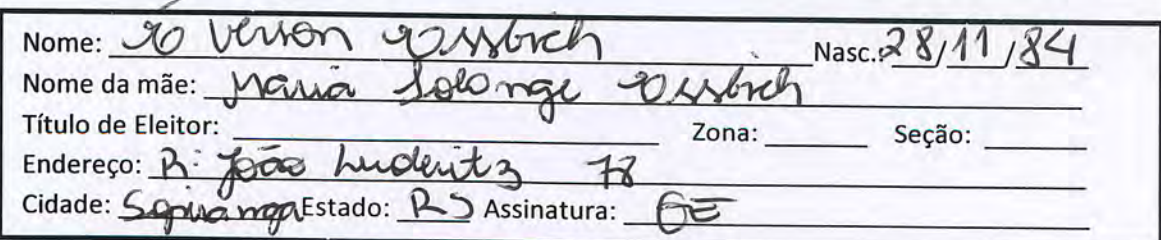 Nome: Everson Ossbich Nasc.: 28/11/84
Nome da mãe: Maria Solange Ossbich
Título de Eleitor: Zona: Seção:
Endereço: R: João Luderitz 78
Cidade: Sapiranga Estado: RS Assinatura: